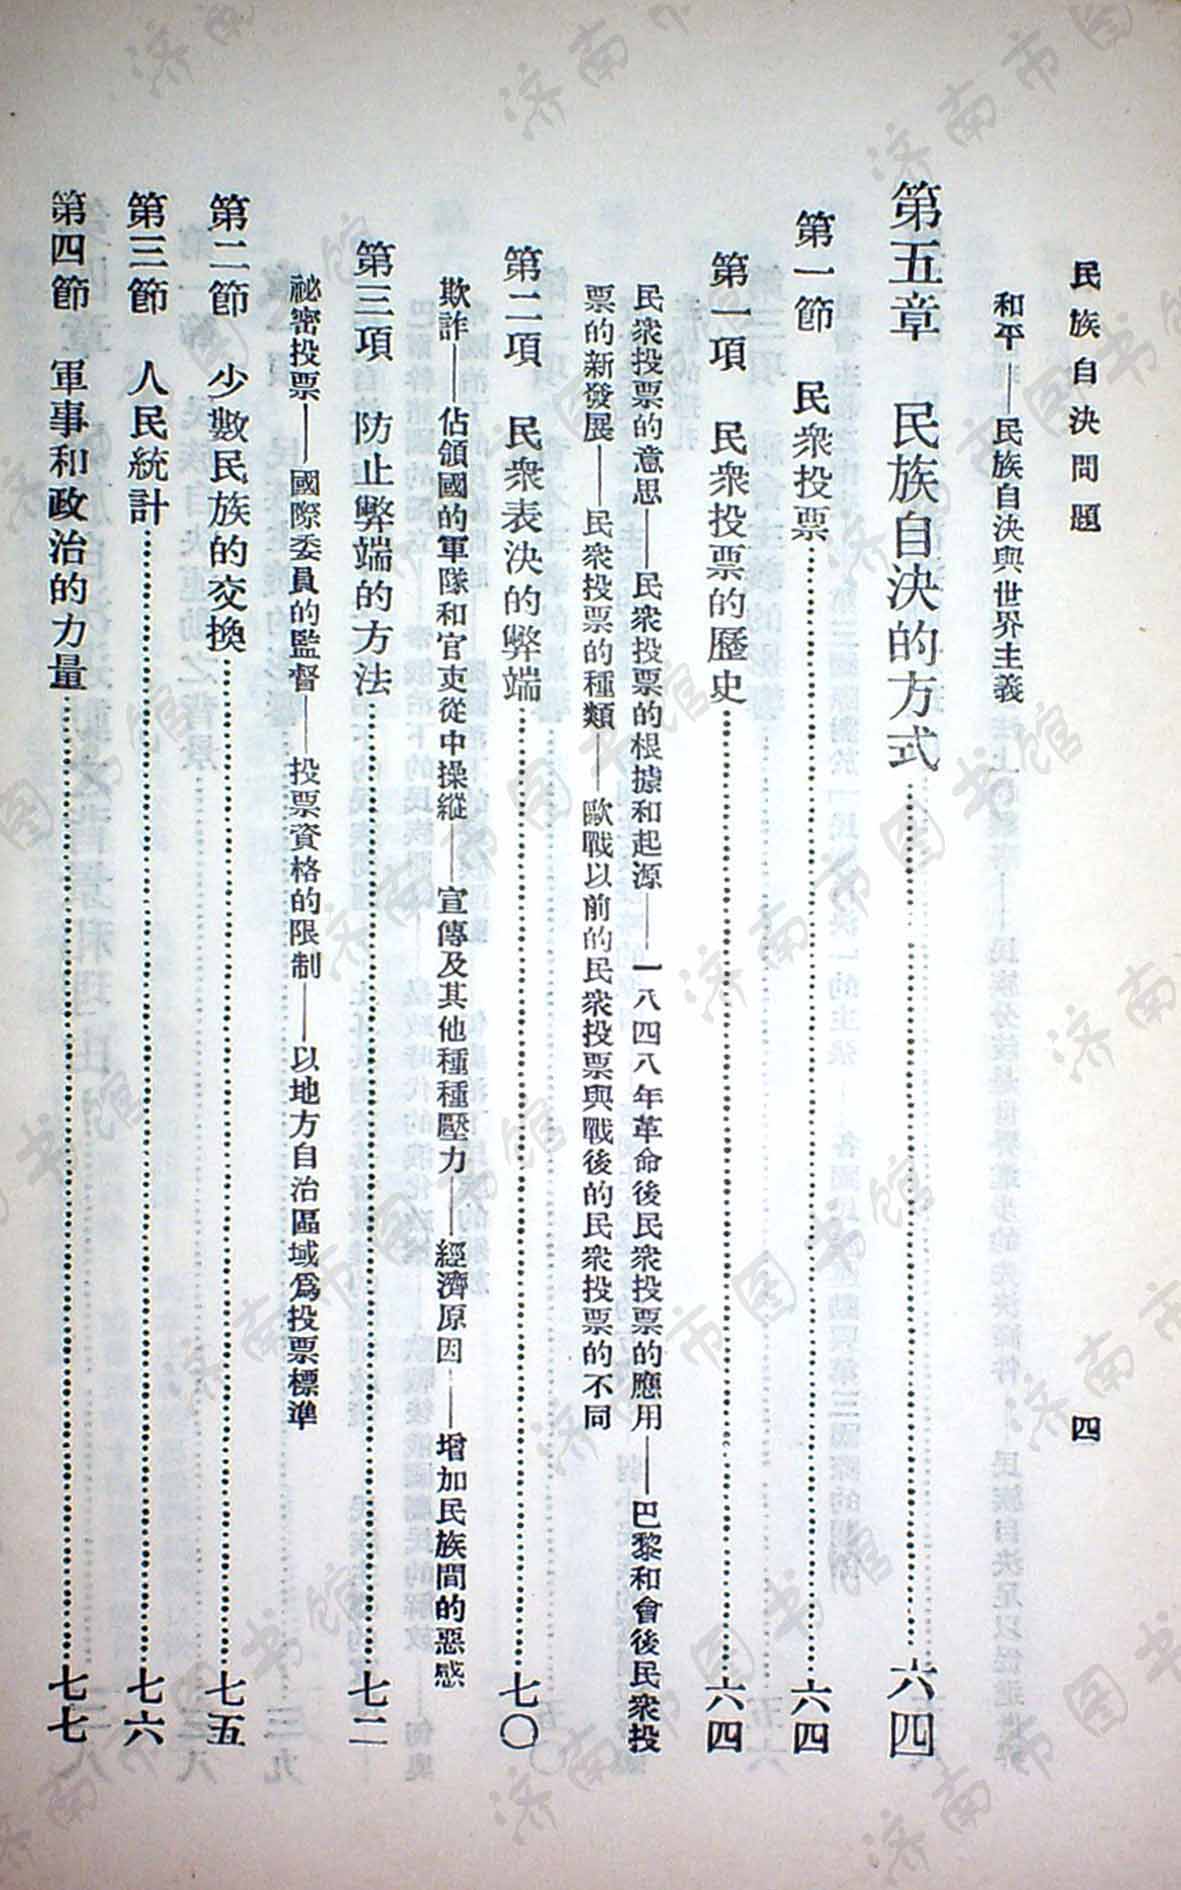 民族自決問題
四
和平——民族自決與世界主義
第五章 民族自決的方式……六四
第一節 民衆投票……六四
第一項 民衆投票的歷史……六四
民衆投票的意思——民衆投票的根據和起源——一八四八年革命後民衆投票的應用——巴黎和會後民衆投
票的新發展——民衆投票的種類——歐戰以前的民衆投票與戰後的民衆投票的不同
第二項 民衆表決的弊端……七〇
欺詐——佔領國的軍隊和官吏從中操縱——宣傳及其他種種壓力——經濟原因——增加民族間的惡感
第三項 防止弊端的方法……七二
祕密投票——國際委員的監督——投票資格的限制——以地方自治區域爲投票標準
第二節 少數民族的交換……七五
第三節 人民統計……七六
第四節 軍事和政治的力量……七七
济南市图书馆